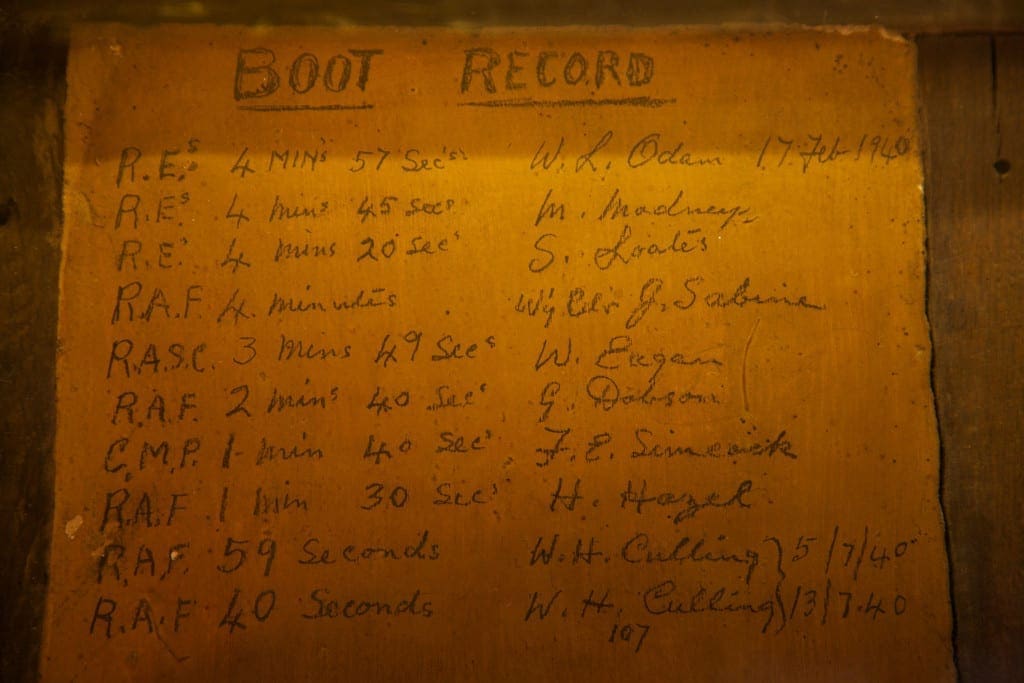 BOOT RECORD
R.E.s 4 MINs 57 Sec's. W. L. Odam 17 Feb 1940
R.E.s 4 mins 45 Secs M. Madney
R.E.s 4 mins 20 Secs S. Loates
R.A.F. 4. minutes J. Sabine
R.A.S.C. 3 Mins 49 Secs W. Eagan
R.A.F. 2 mins 40 Secs G. Dobson
C.M.P. 1 min 40 Secs F. E. Simcock
R.A.F 1 min 30 Secs H. Hazel
R.A.F. 59 Seconds W. H. Culling } 5/7/40
R.A.F 40 Seconds W. H. Culling } 13/7.40
107